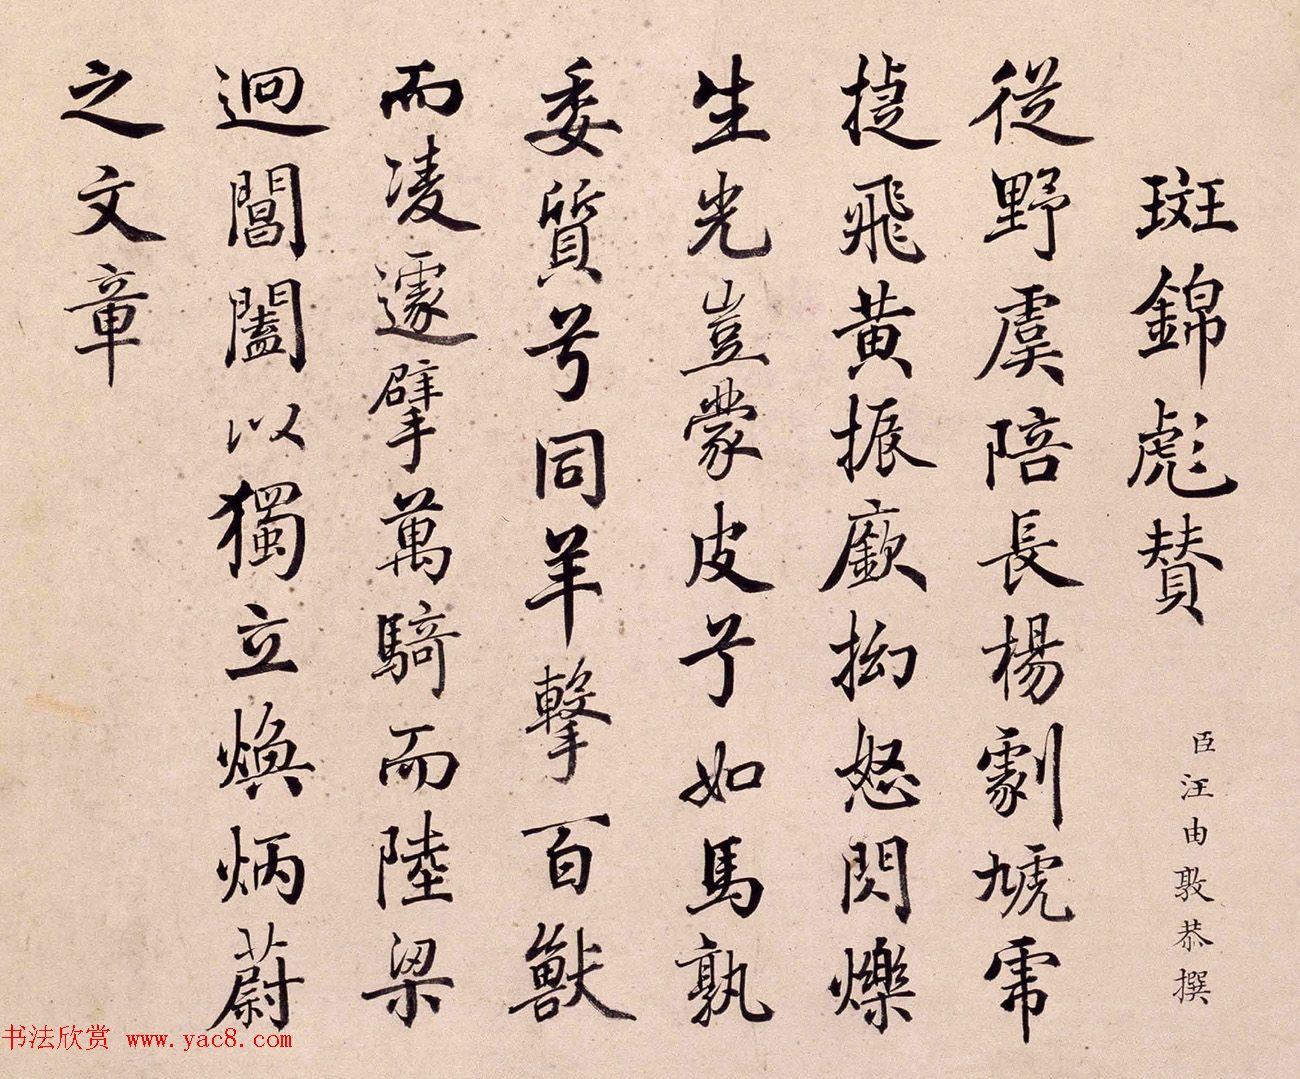 斑錦彪賛
臣汪由敦恭撰
從野虞陪長楊劇虓乕
捷飛黃振廞拗怒閃爍
生光豈蒙皮兮如馬孰
委質兮同羊擊百獸
而凌遽擘萬騎而陸梁
迴閶闔以獨立煥炳蔚
之文章
书法欣赏 www.yac8.com